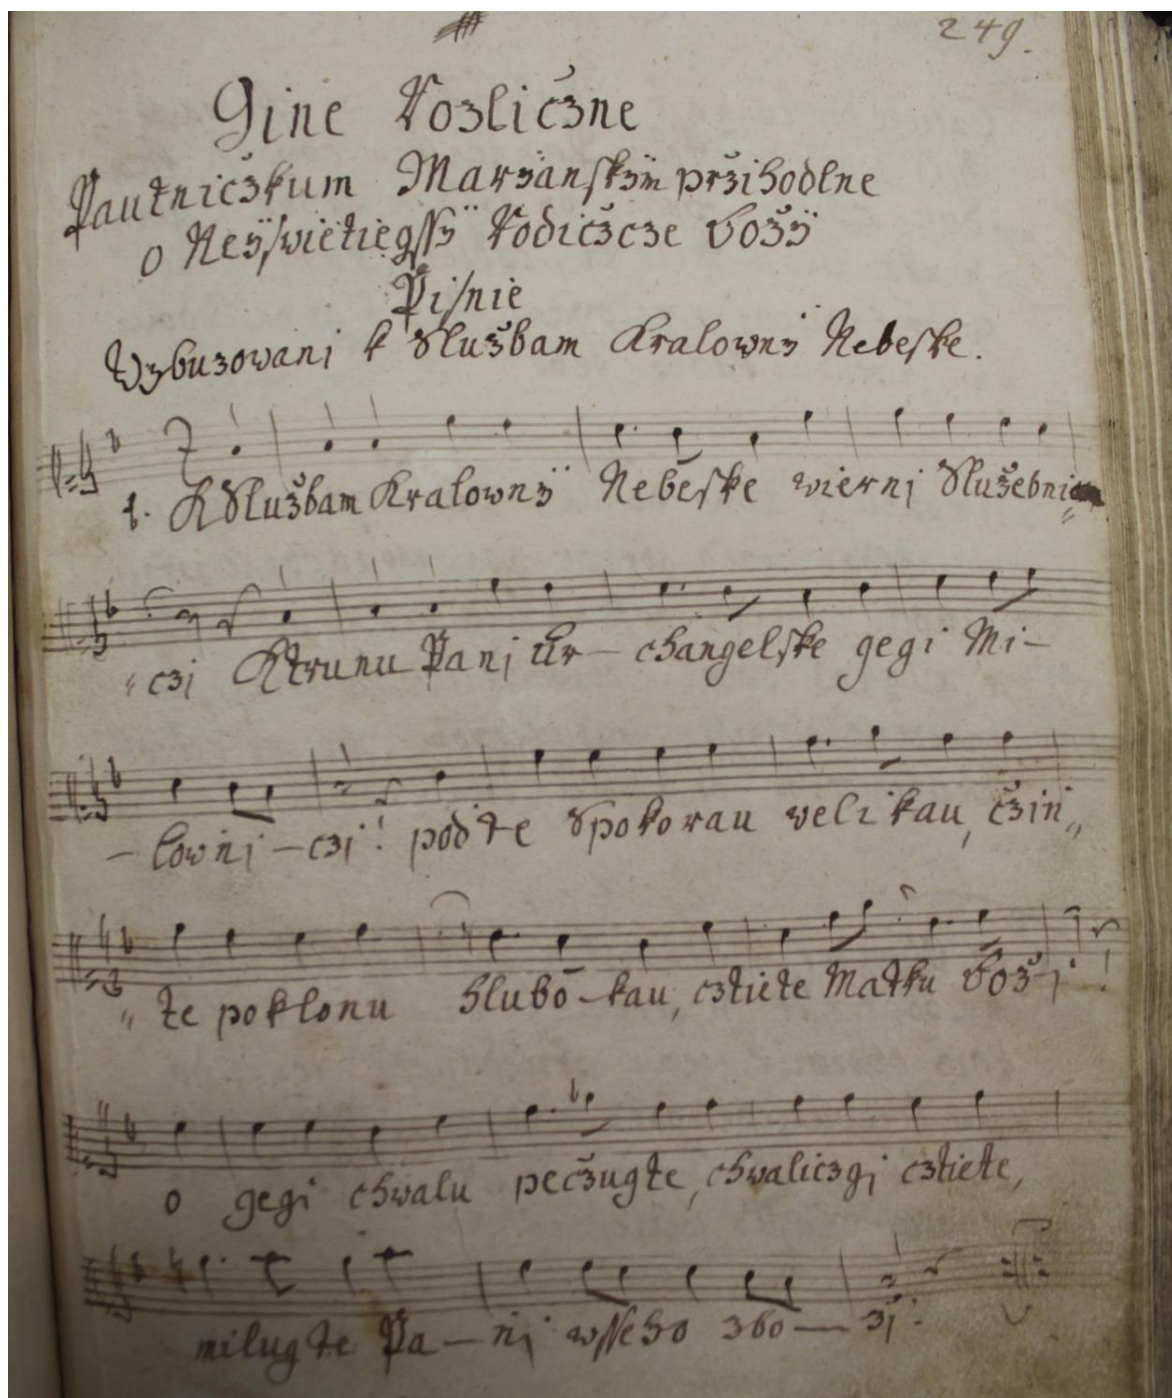 249.
Gine Rozliczne
Pautniczkum Marzanskym przihodlne
o Neyswietiegssy Rodiczcze Božy
Pisnie
Wzbuzowani k Službam Kralowny Nebeske.
1. K Službam Kralowny Nebeske wierni Služebni„
„czi K trunu Pani Ar– changelske gegi Mi–
–lowni–czi! podte Spokorau welikau, czin„
„te poklonu hlubo–kau, cztiete Matku Bož–i!
o gegi chwalu peczugte, chwaliczgi cztiete,
milugte Pa–ni wsseho zbo–zi.